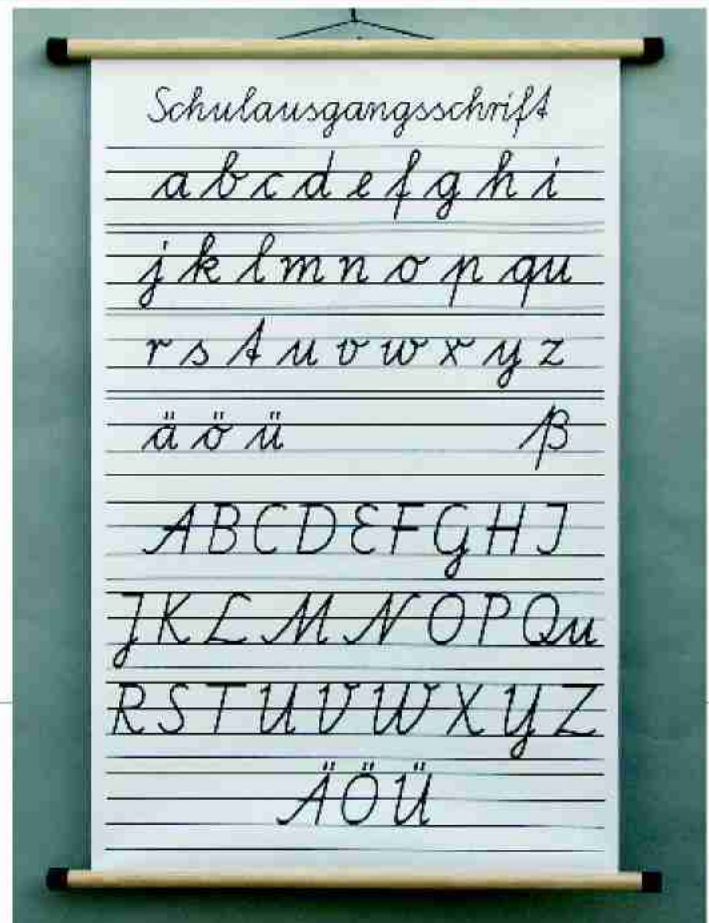 Schulausgangsschrift
a b c d e f g h i
j k l m n o p qu
r s t u v w x y z
ä ö ü ß
A B C D E F G H I
J K L M N O P Qu
R S T U V W X Y Z
Ä Ö Ü